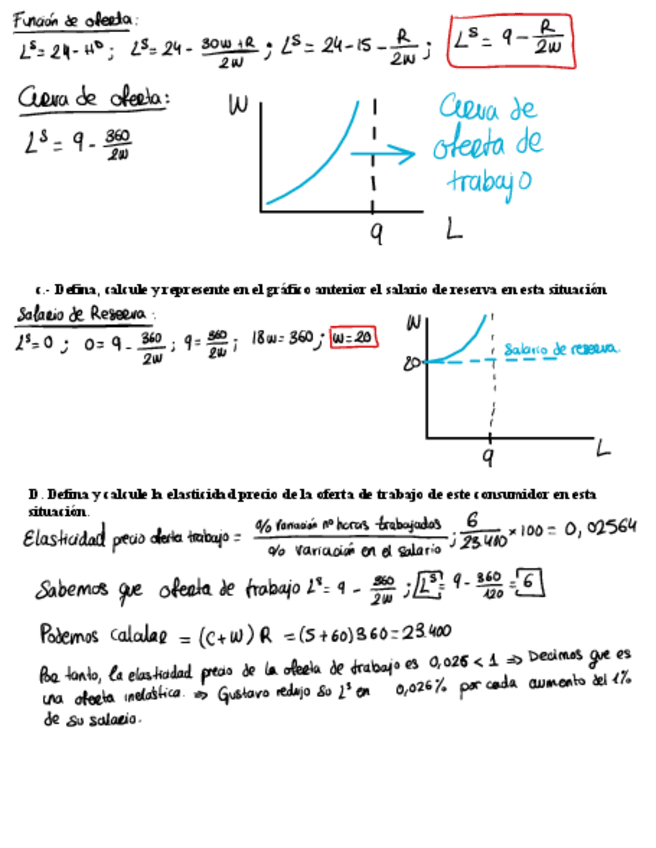 Función de oferta:
L^S = 24 - H^D ; L^S = 24 - (30w+R)/2w ; L^S = 24 - 15 - R/2w ; L^S = 9 - R/2w
Curva de oferta:
L^S = 9 - 360/2w
W
Curva de
oferta de
trabajo
9
L
c.- Defina, calcule y represente en el gráfico anterior el salario de reserva en esta situación
Salario de Reserva:
L^S = 0 ; 0 = 9 - 360/2w ; 9 = 360/2w ; 18w = 360 ; w = 20
W
20
Salario de reserva.
9
L
D. Defina y calcule la elasticidad precio de la oferta de trabajo de este consumidor en esta
situación.
Elasticidad precio oferta trabajo = % variación nº horas trabajadas / % variación en el salario ; 6/23.400 × 100 = 0,02564
Sabemos que oferta de trabajo L^S = 9 - 360/2w ; L^S = 9 - 360/120 = 6
Podemos calular = (C+W) R = (5+60)360 = 23.400
Por tanto, la elasticidad precio de la oferta de trabajo es 0,026 < 1 ⇒ Decimos que es
una oferta inelástica. ⇒ Gustavo redujo su L^S en 0,026% por cada aumento del 1%
de su salario.